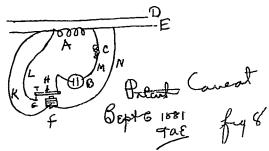 D
E
A
C
L
H
M
N
K
I
B
E
F
Patent Caveat
Sept 6 1881
TAE
fig 8